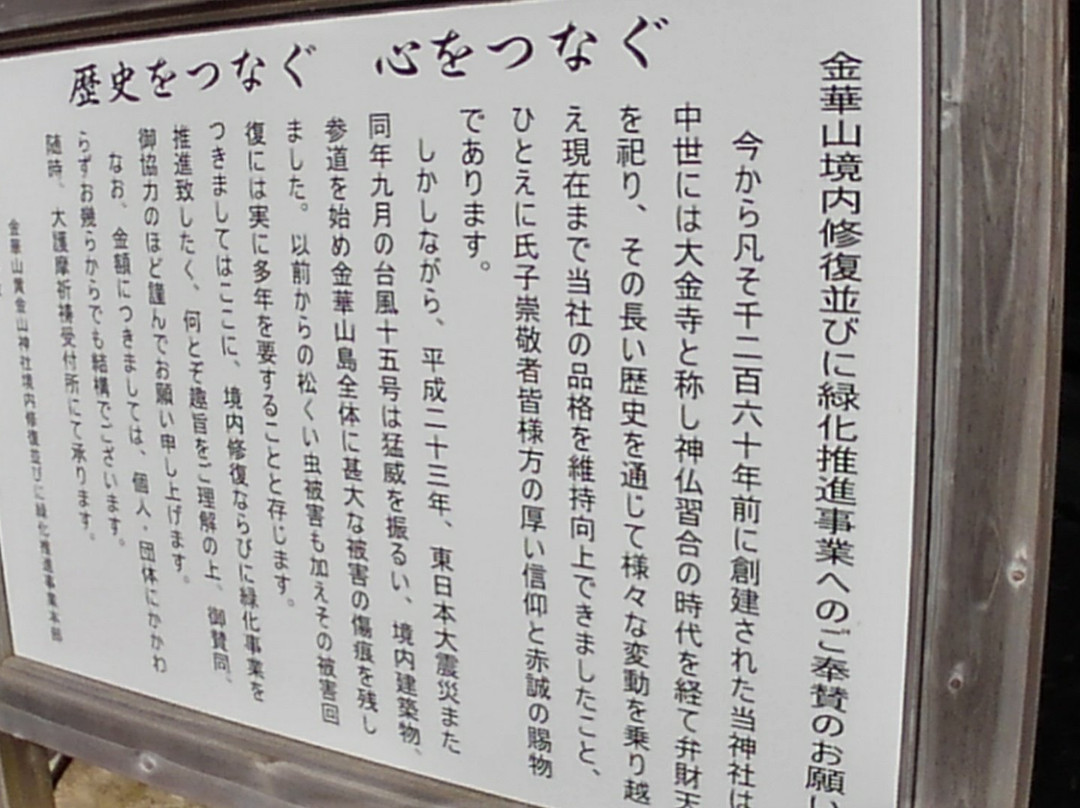 金華山境内修復並びに緑化推進事業へのご奉賛のお願い
今から凡そ千二百六十年前に創建された当神社は
中世には大金寺と称し神仏習合の時代を経て弁財天
を祀り、その長い歴史を通じて様々な変動を乗り越
え現在まで当社の品格を維持向上できましたこと、
ひとえに氏子崇敬者皆様方の厚い信仰と赤誠の賜物
であります。
しかしながら、平成二十三年、東日本大震災また
同年九月の台風十五号は猛威を振るい、境内建築物、
参道を始め金華山島全体に甚大な被害の傷痕を残し
ました。以前からの松くい虫被害も加えその被害回
復には実に多年を要することと存じます。
つきましてはここに、境内修復ならびに緑化事業を
推進致したく、何とぞ趣旨をご理解の上、御賛同、
御協力のほど謹んでお願い申し上げます。
なお、金額につきましては、個人・団体にかかわ
らずお幾らからでも結構でございます。
随時、大護摩祈祷受付所にて承ります。
金華山黄金山神社境内修復並びに緑化推進事業本部
心をつなぐ
歴史をつなぐ